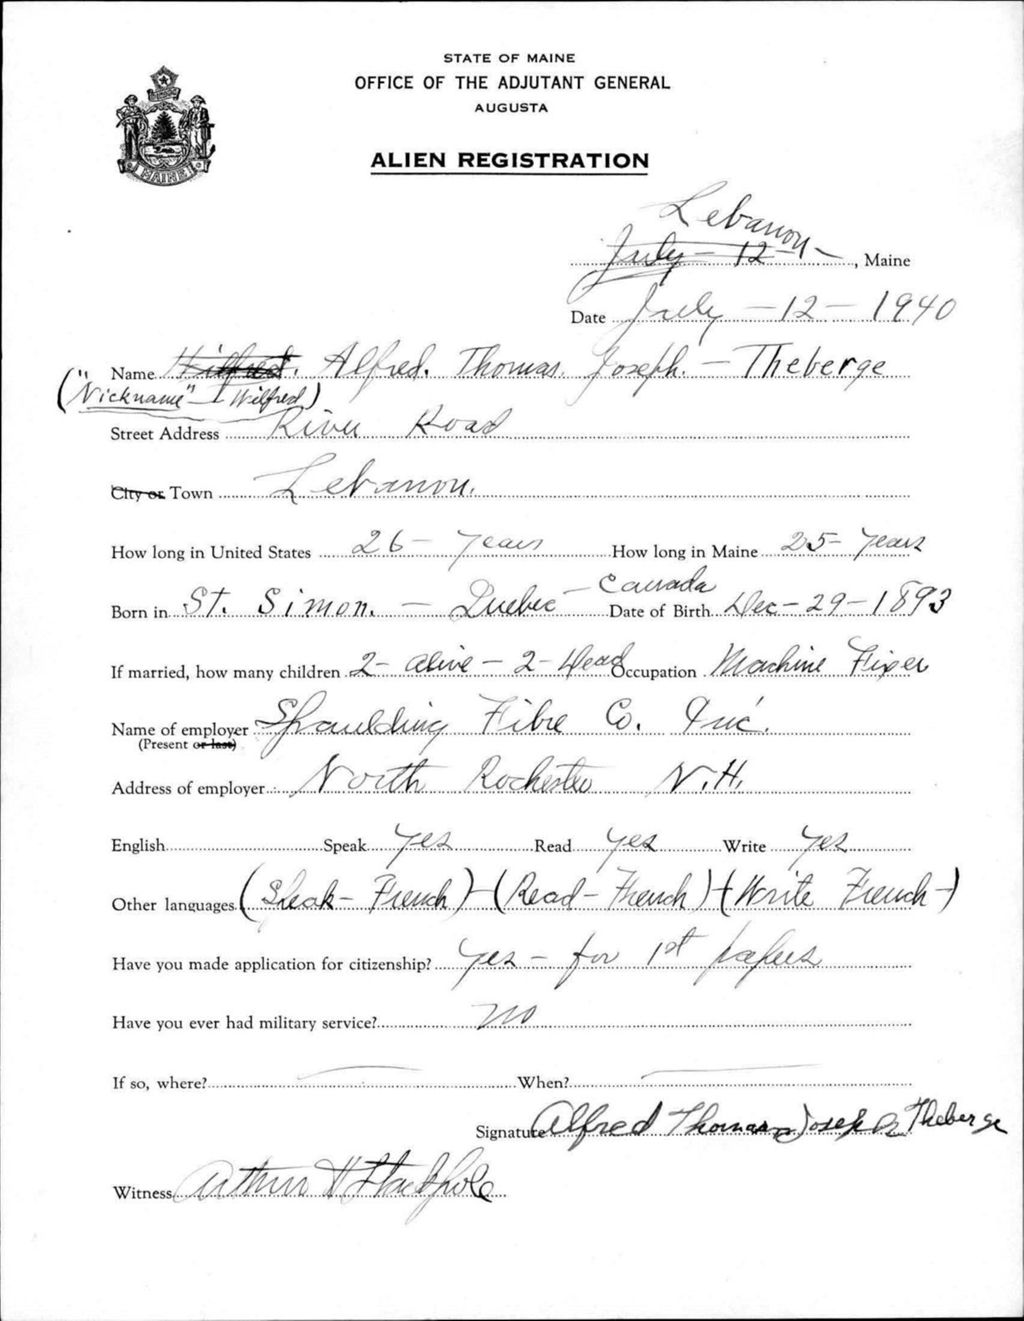 STATE OF MAINE
OFFICE OF THE ADJUTANT GENERAL
AUGUSTA
MAINE
ALIEN REGISTRATION
Lebanon
July - 12 - , Maine
Date July - 12 - 1940
Name Wilfred. Alfred. Thomas. Joseph. - Theberge
("Nickname" - Wilfred)
Street Address River Road
City or Town Lebanon.
How long in United States 26 - years How long in Maine 25 - years
Born in St. Simon. - Quebec - Canada Date of Birth Dec - 29 - 1893
If married, how many children 2 - alive - 2 - Dead Occupation Machine Fixer
Name of employer Spaulding Fibre Co. Inc.
(Present or last)
Address of employer North Rochester N.H.
English Speak Yes Read Yes Write Yes
Other languages (Speak - French) - (Read - French) - (Write French -)
Have you made application for citizenship? Yes - for 1st papers
Have you ever had military service? no
If so, where? When?
Signature Alfred Thomas Joseph Theberge
Witness Arthur H Stackpole